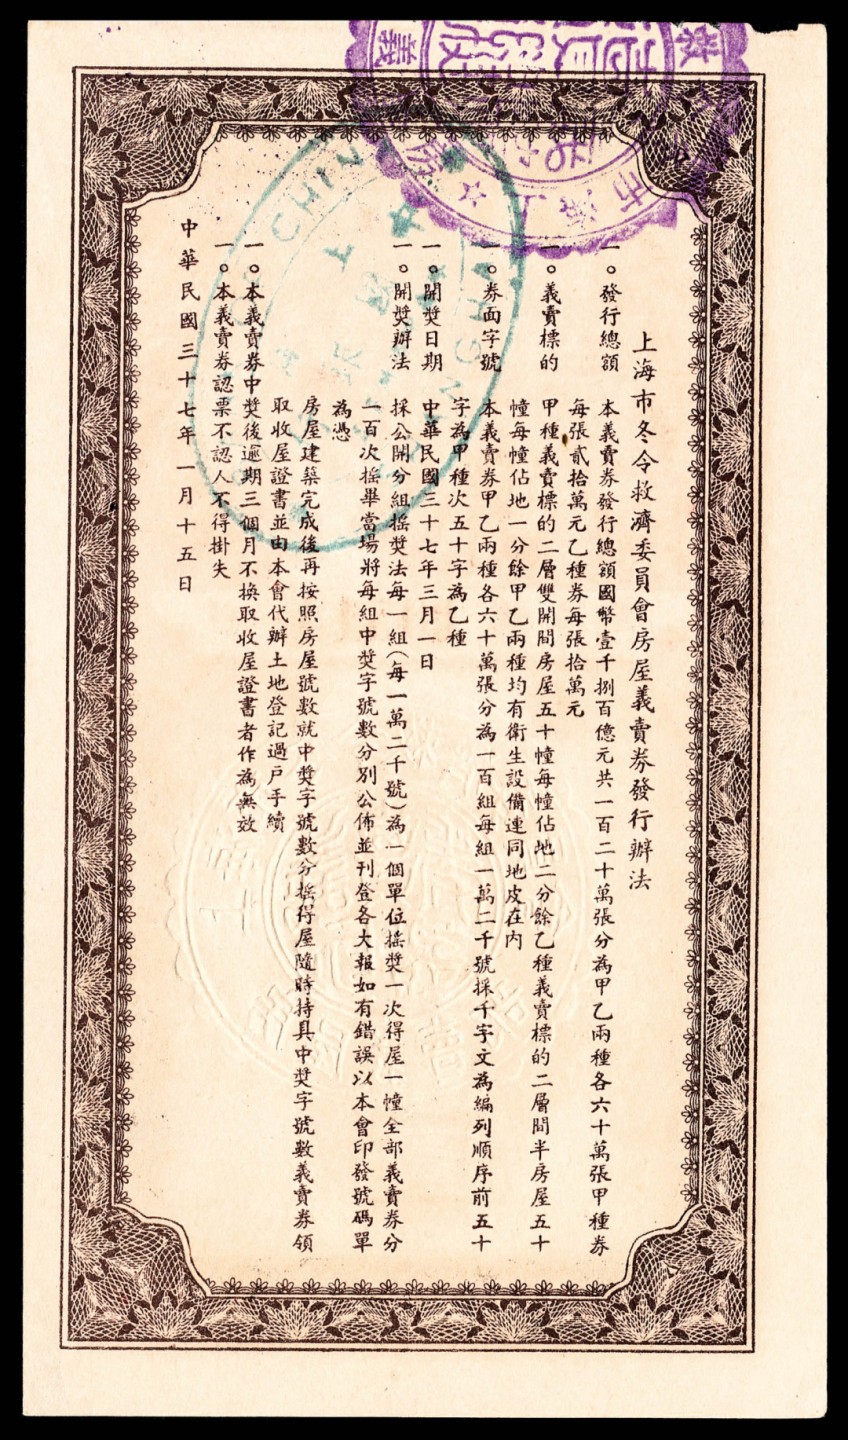 上海市冬令救濟委員會房屋義賣券發行辦法
一。發行總額　本義賣券發行總額國幣壹千捌百億元共一百二十萬張分為甲乙兩種各六十萬張甲種券
每張貳拾萬元乙種券每張拾萬元
一。義賣標的　甲種義賣標的二層雙開間房屋五十幢每幢佔地二分餘乙種義賣標的二層間半房屋五十
幢每幢佔地一分餘甲乙兩種均有衛生設備連同地皮在內
一。券面字號　本義賣券甲乙兩種各六十萬張分為一百組每組一萬二千號採千字文為編列順序前五十
字為甲種次五十字為乙種
一。開獎日期　中華民國三十七年三月一日
一。開獎辦法　採公開分組搖獎法每一組(每一萬二千號)為一個單位搖獎一次得屋一幢全部義賣券分
一百次搖畢當場將每組中獎字號數分別公佈並刊登各大報如有錯誤以本會印發號碼單
為憑
房屋建築完成後再按照房屋號數就中獎字號數分搖得屋隨時持具中獎字號數義賣券領
取收屋證書並由本會代辦土地登記過戶手續
一。本義賣券中獎後逾期三個月不換取收屋證書者作為無效
一。本義賣券認票不認人不得掛失
中華民國三十七年一月十五日
上海市
CHINA